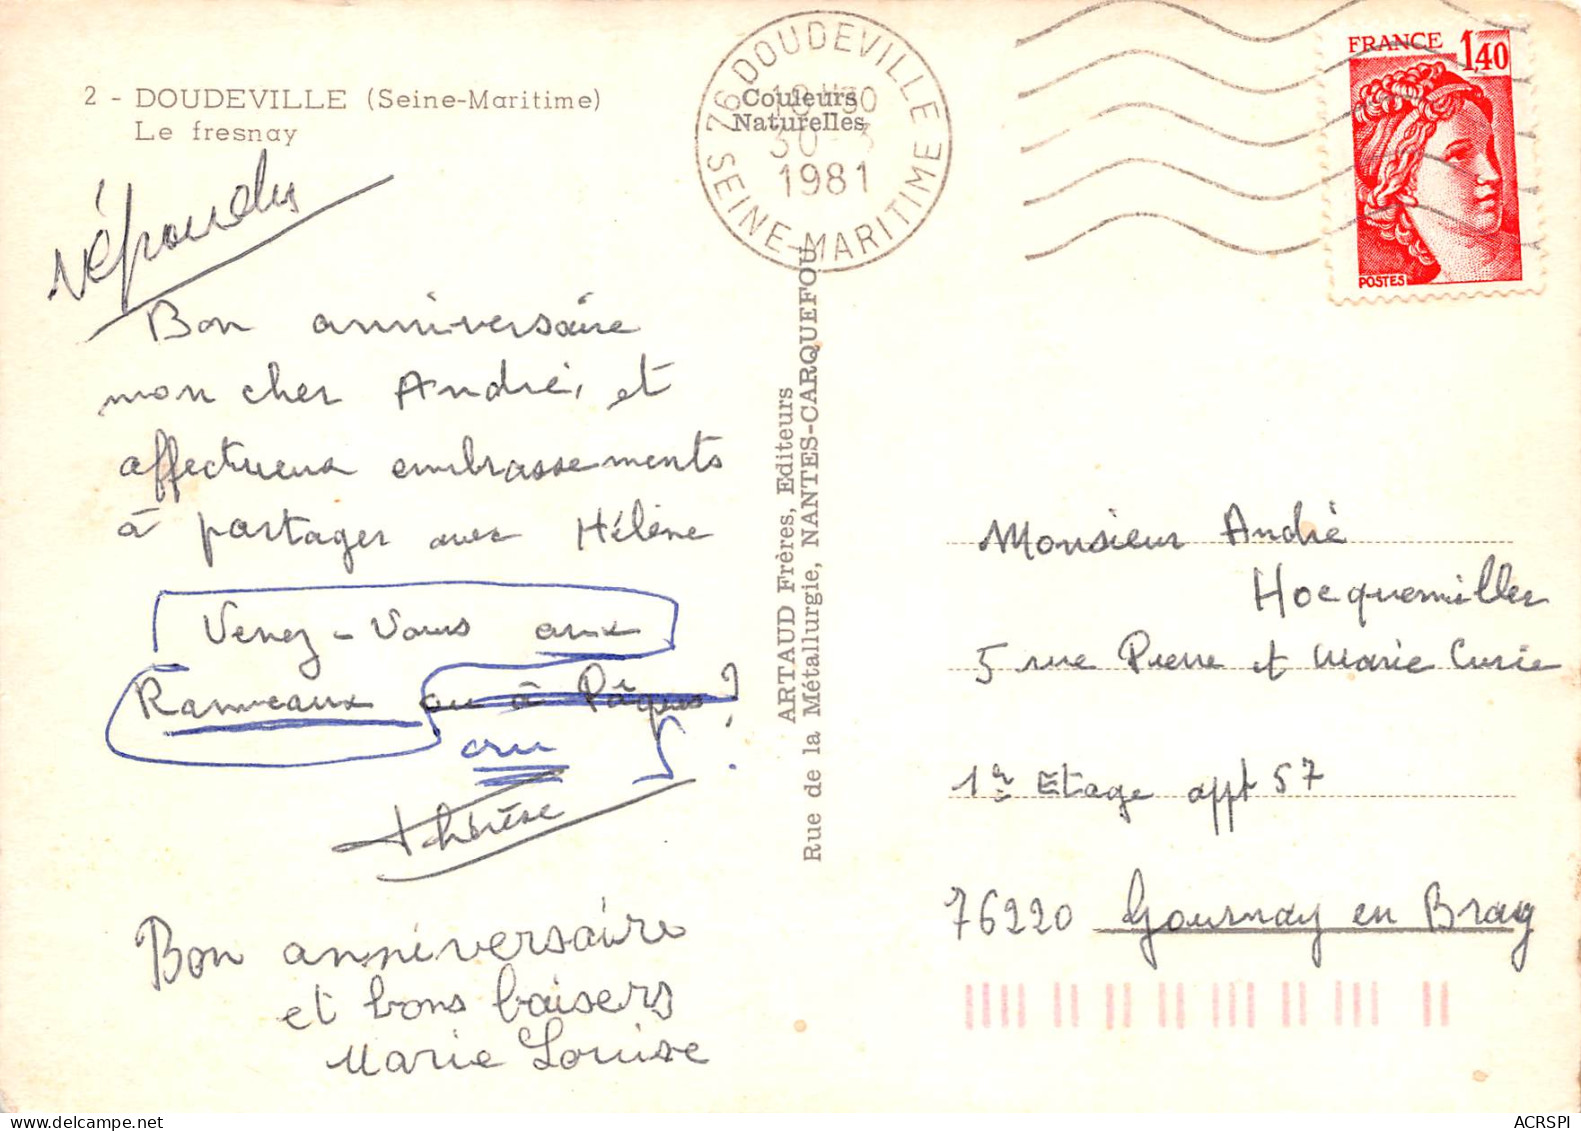 2 - DOUDEVILLE (Seine-Maritime)
Le fresnay
répondu
Bon anniversaire
mon cher André, et
affectueux embrassements
à partager avec Hélène
Venez-vous aux
Rameaux ou à Pâques ?
ou ?
Thérèse
Bon anniversaire
et bons baisers
Marie Louise
Couleurs
Naturelles
76 DOUDEVILLE
18H30
30-3
1981
SEINE-MARITIME
ARTAUD Frères, Editeurs
Rue de la Métallurgie, NANTES-CARQUEFOU
FRANCE 1,40
POSTES
Monsieur André
Hocquemiller
5 rue Pierre et Marie Curie
1er Etage appt 57
76220 Gournay en Bray
ACRSPI